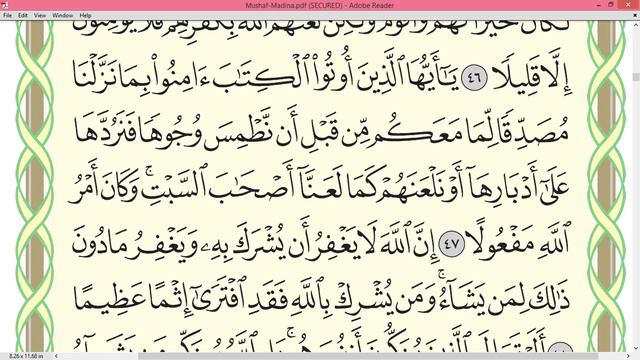 Mushaf-Madina.pdf (SECURED) - Adobe Reader
File Edit View Window Help
لَكَانَ خَيْرًا لَّهُمْ وَأَقْوَمَ وَلَٰكِن لَّعَنَهُمُ ٱللَّهُ بِكُفْرِهِمْ فَلَا يُؤْمِنُونَ
إِلَّا قَلِيلًا ٤٦ يَٰٓأَيُّهَا ٱلَّذِينَ أُوتُوا۟ ٱلْكِتَٰبَ ءَامِنُوا۟ بِمَا نَزَّلْنَا
مُصَدِّقًا لِّمَا مَعَكُم مِّن قَبْلِ أَن نَّطْمِسَ وُجُوهًا فَنَرُدَّهَا
عَلَىٰٓ أَدْبَارِهَآ أَوْ نَلْعَنَهُمْ كَمَا لَعَنَّآ أَصْحَٰبَ ٱلسَّبْتِ ۚ وَكَانَ أَمْرُ
ٱللَّهِ مَفْعُولًا ٤٧ إِنَّ ٱللَّهَ لَا يَغْفِرُ أَن يُشْرَكَ بِهِۦ وَيَغْفِرُ مَا دُونَ
ذَٰلِكَ لِمَن يَشَآءُ ۚ وَمَن يُشْرِكْ بِٱللَّهِ فَقَدِ ٱفْتَرَىٰٓ إِثْمًا عَظِيمًا
8.26 x 11.68 in